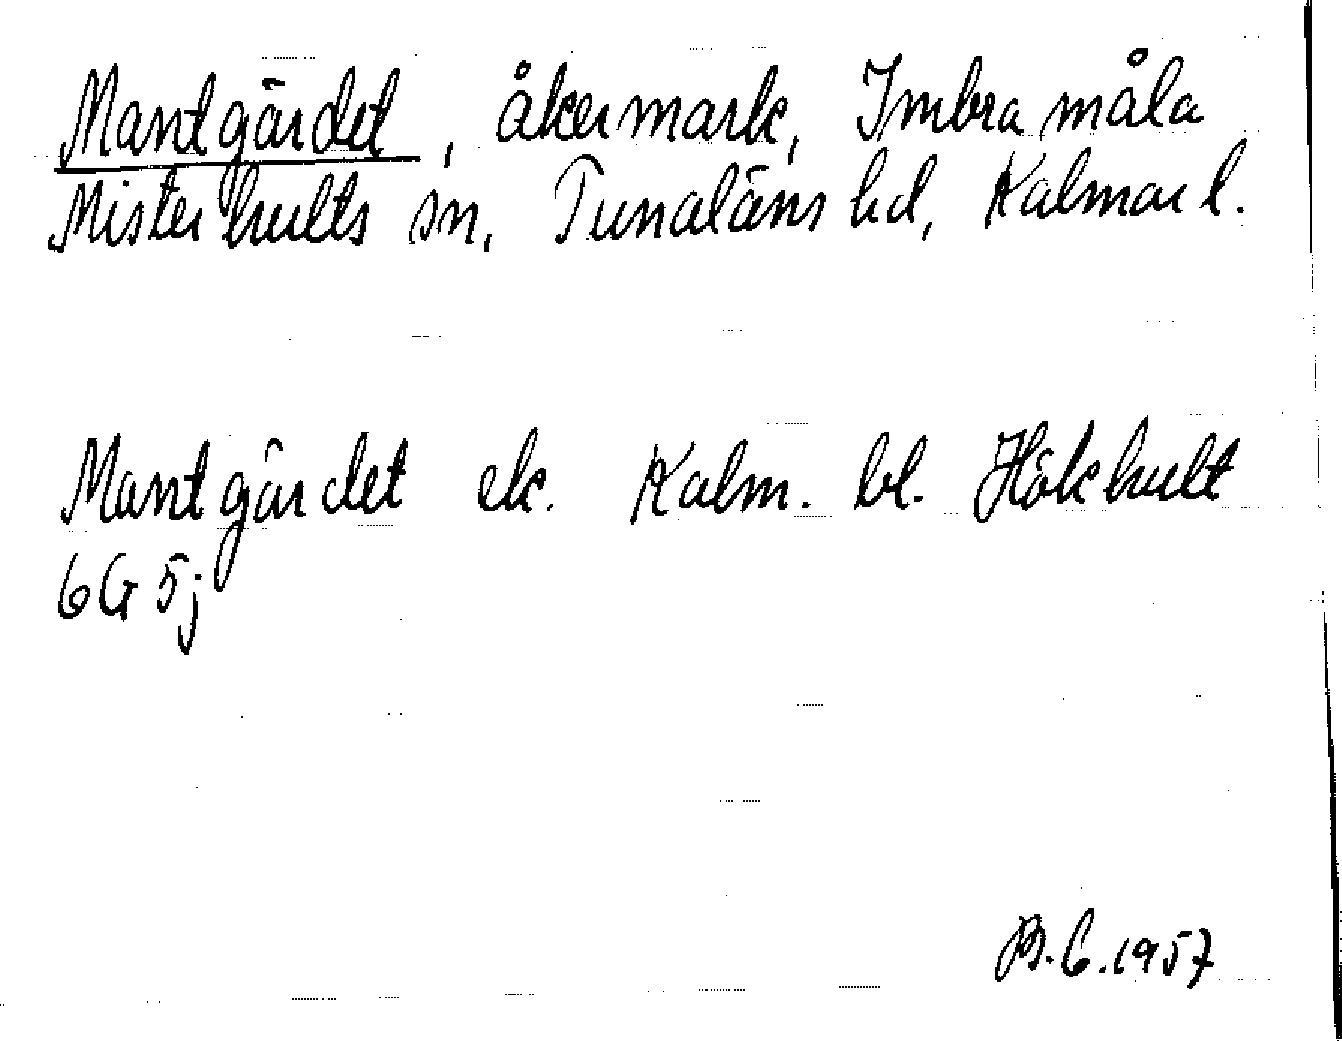 Mantgärdet, åkermark, Imbramåla
Misterhults sn, Tunaläns hd, Kalmar l.
Mantgärdet ek. Kalm. bl. Hökhult
6G 5j
B.G.1957